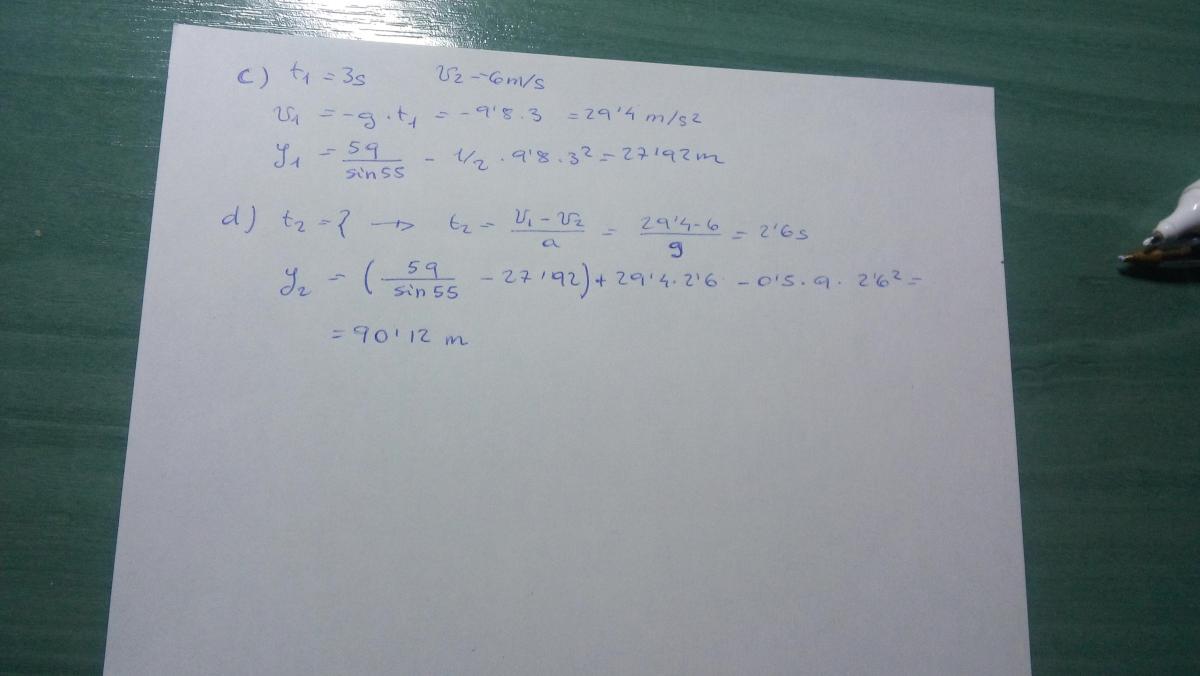 c) t₁ = 3s v₂ = -6m/s
v₁ = -g · t₁ = -9'8 · 3 = 29'4 m/s²
y₁ = 59/sin55 - 1/2 · 9'8 · 3² = 27'92m
d) t₂ = ? → t₂ = (v₁ - v₂)/a = (29'4 - 6)/9 = 2'6s
y₂ = (59/sin55 - 27'92) + 29'4 · 2'6 - 0'5 · 9 · 2'6² =
= 90'12 m